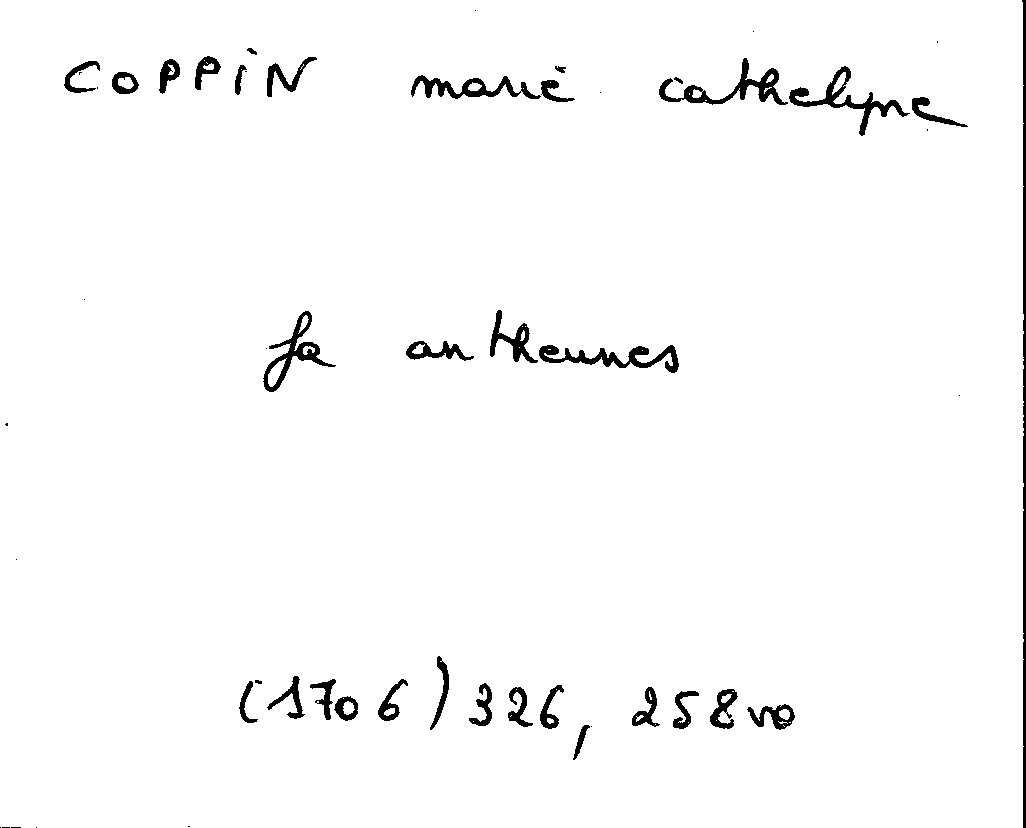 COPPIN marie cathelyne
fa antheunes
(1706) 326, 258vo